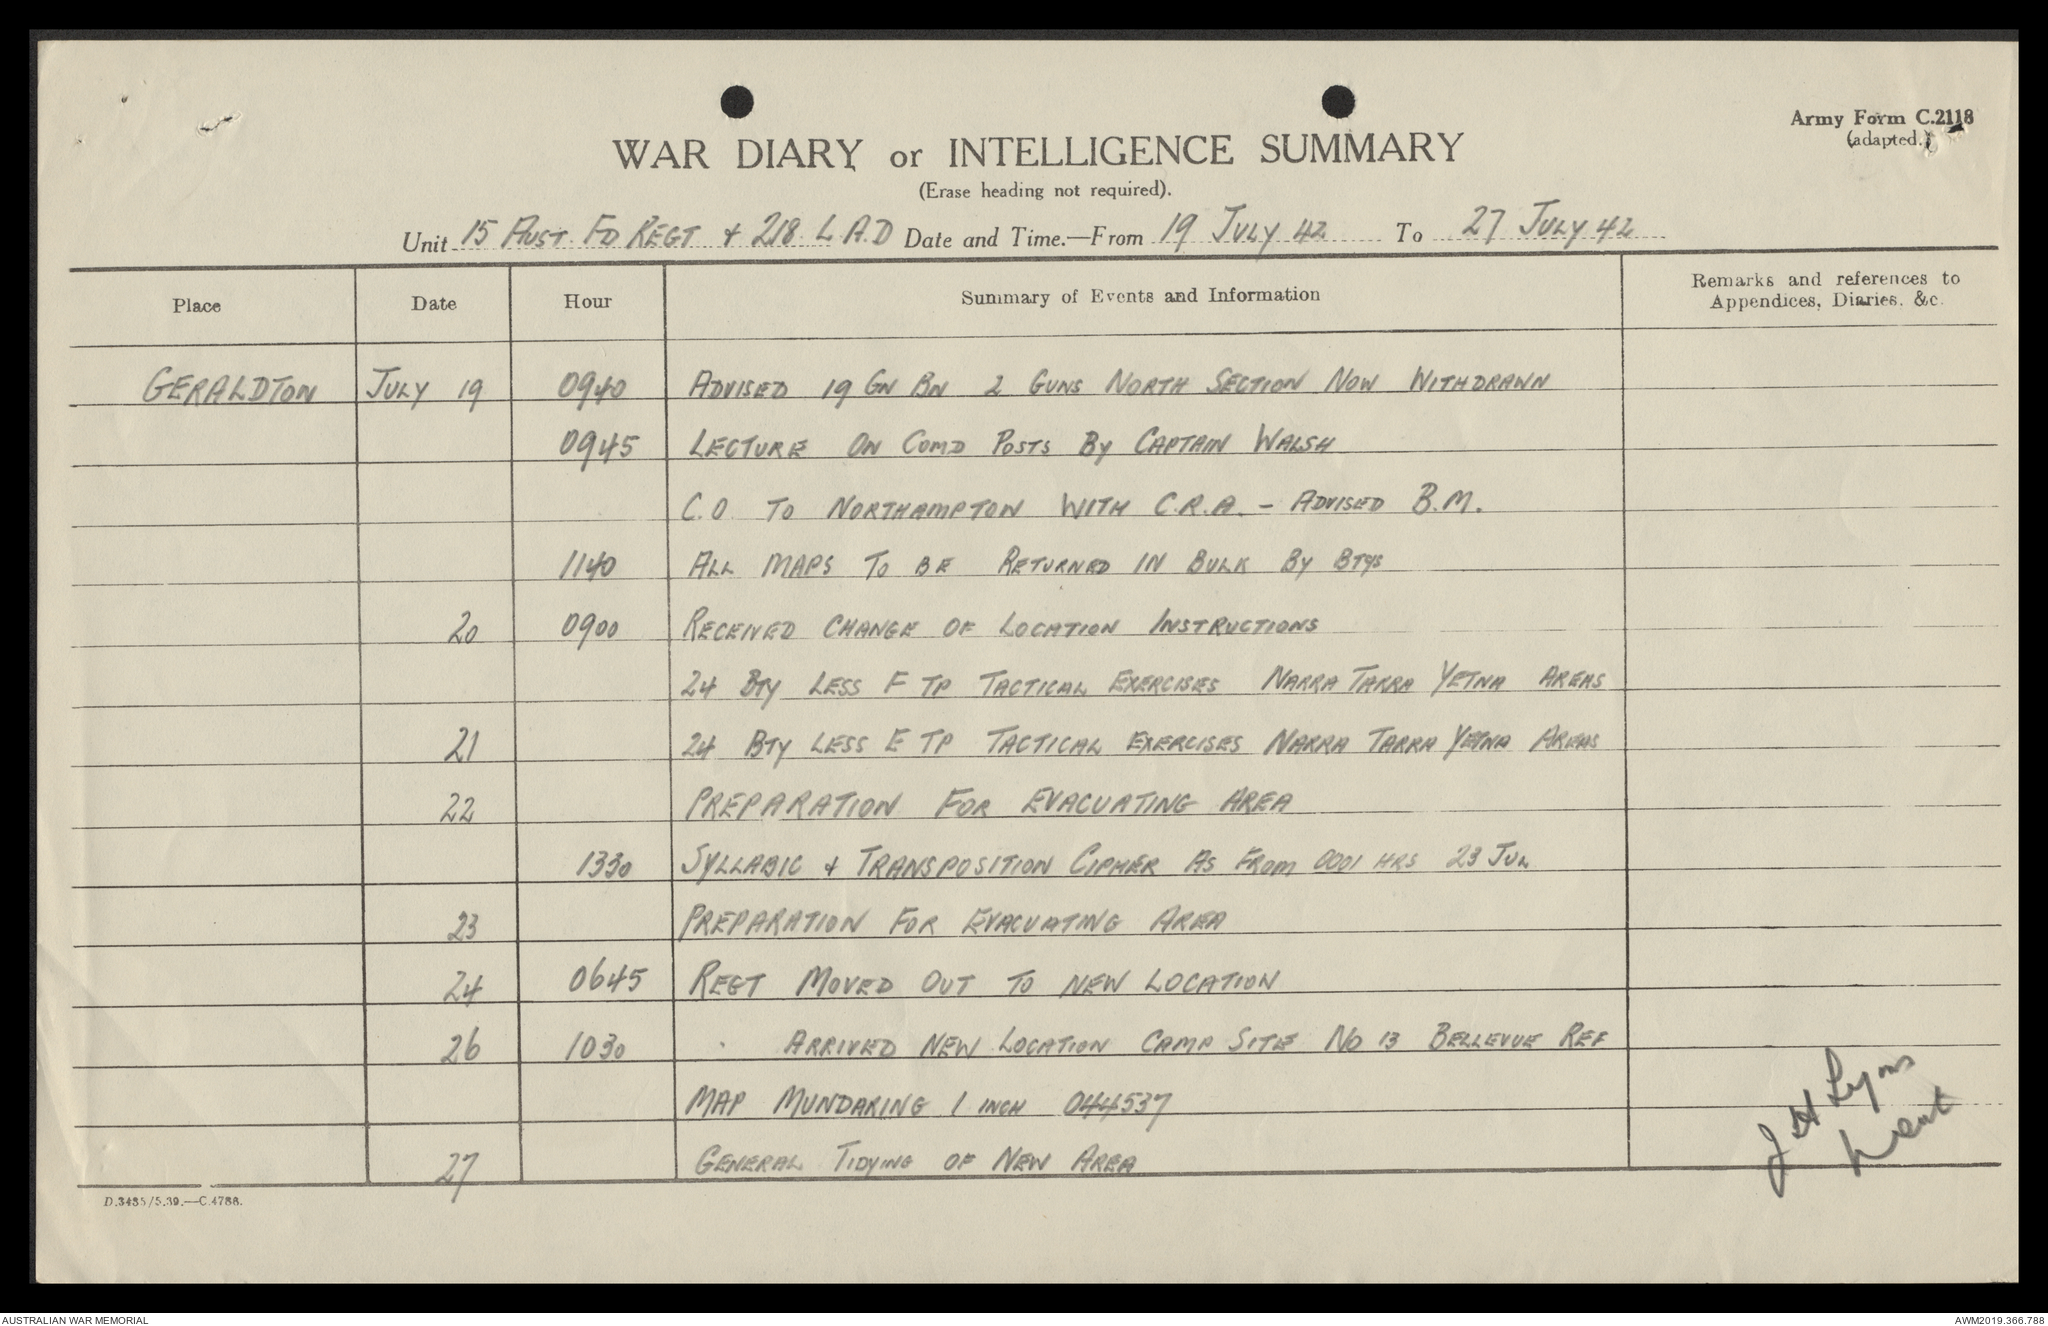 Army Form C.2118
(adapted.)
WAR DIARY or INTELLIGENCE SUMMARY
(Erase heading not required).
Unit 15 AUST. FD REGT & 218. L.A.D Date and Time.—From 19 JULY 42 To 27 JULY 42
Place Date Hour Summary of Events and Information Remarks and references to Appendices, Diaries, &c.
GERALDTON JULY 19 0940 ADVISED 19 GN BN 2 GUNS NORTH SECTION NOW WITHDRAWN
0945 LECTURE ON COMD POSTS BY CAPTAIN WALSH
C.O. TO NORTHAMPTON WITH C.R.A. – ADVISED B.M.
1140 ALL MAPS TO BE RETURNED IN BULK BY BTYS
20 0900 RECEIVED CHANGE OF LOCATION INSTRUCTIONS
24 BTY LESS F TP TACTICAL EXERCISES NARRA TARRA YETNA AREAS
21 24 BTY LESS E TP TACTICAL EXERCISES NARRA TARRA YETNA AREAS
22 PREPARATION FOR EVACUATING AREA
1330 SYLLABIC & TRANSPOSITION CIPHER AS FROM 0001 HRS 23 JUL
23 PREPARATION FOR EVACUATING AREA
24 0645 REGT MOVED OUT TO NEW LOCATION
26 1030 " ARRIVED NEW LOCATION CAMP SITE NO 13 BELLEVUE REF
MAP MUNDARING 1 INCH 044537
27 GENERAL TIDYING OF NEW AREA
J H Lyons
Lieut
D.3435/5.39.—C.4786.
AUSTRALIAN WAR MEMORIAL
AWM2019.366.788